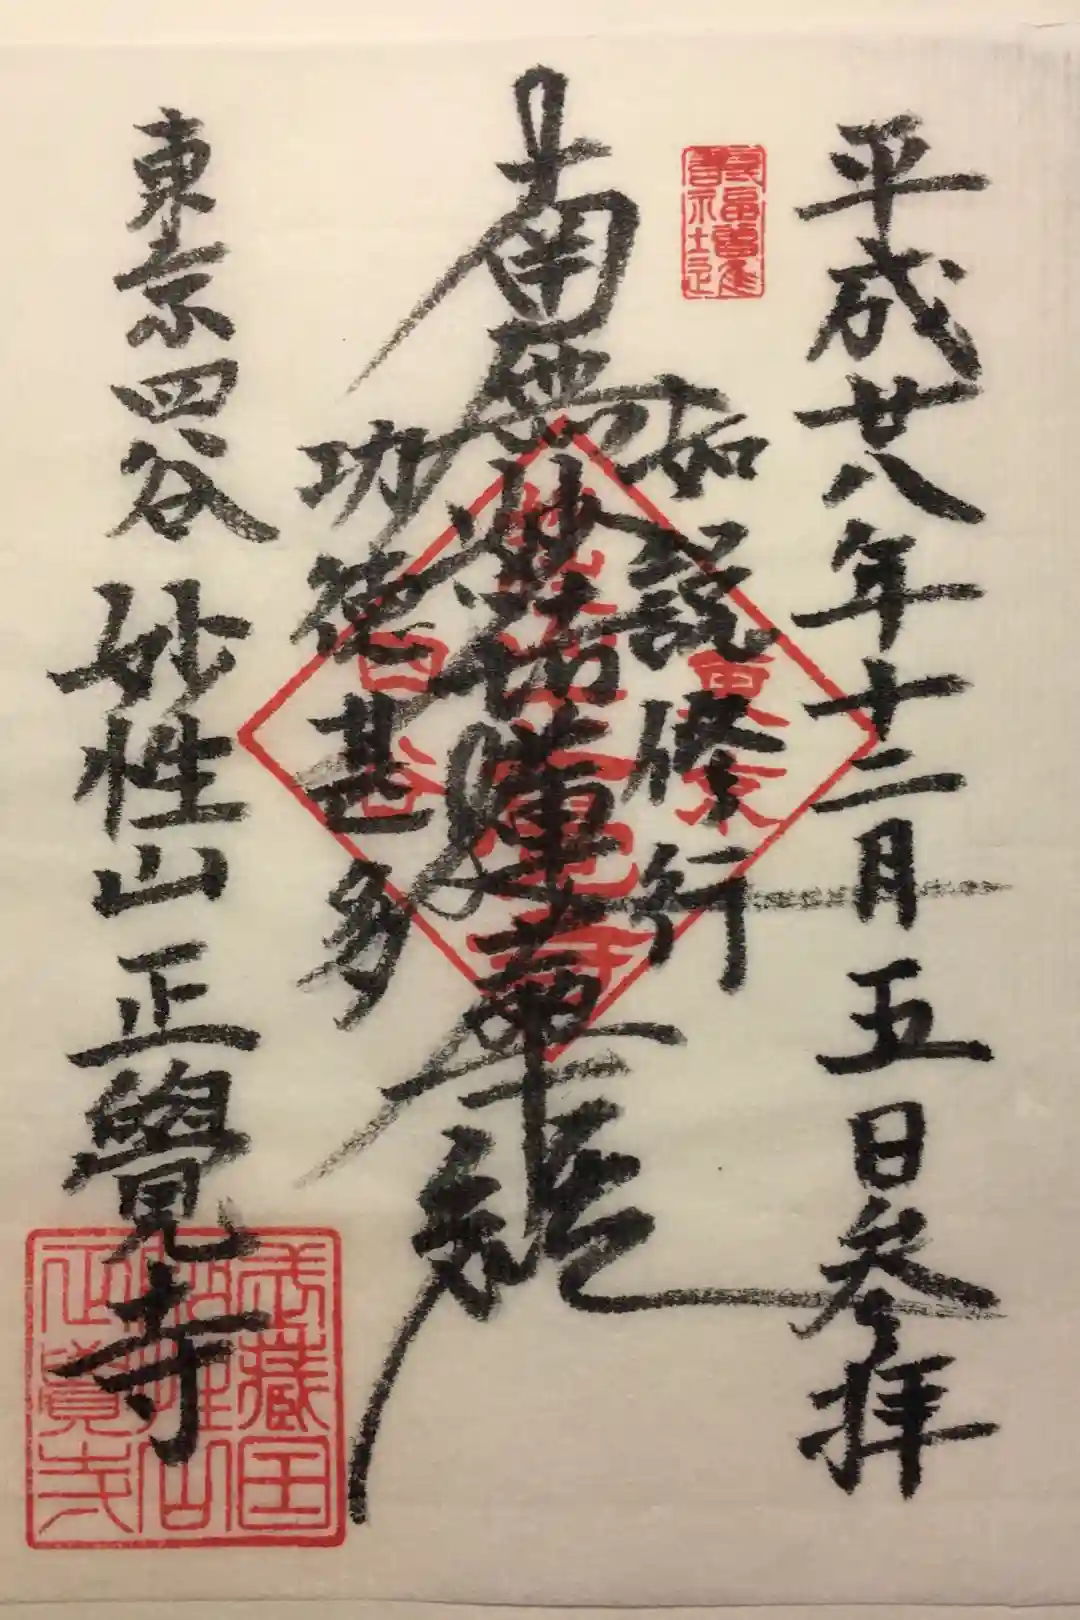 平成廿八年十二月五日参拝
如説修行
南無妙法蓮華経
功徳甚多
東京四谷 妙性山 正覺寺
東京
妙性山正覺寺
四谷
武藏国
妙性山
正覺寺